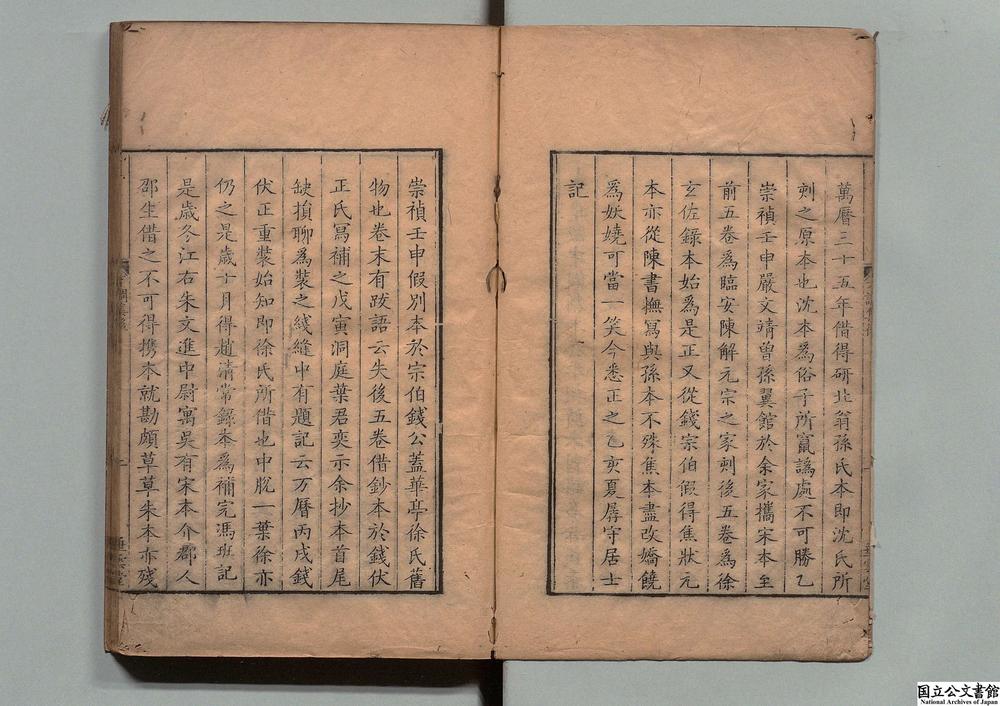 萬曆三十五年借得研北翁孫氏本即沈氏所
刺之原本也沈本為俗子所竄譌處不可勝乙
崇禎壬申嚴文靖曾孫翼館於余家攜宋本至
前五卷為臨安陳解元宗之家刺後五卷為徐
玄佐錄本始為是正又從錢宗伯假得焦狀元
本亦從陳書撫寫與孫本不殊焦本盡改嬌饒
為妖嬈可當一笑今悉正之乙亥夏孱守居士
記
崇禎壬申假別本於宗伯錢公蓋華亭徐氏舊
物也卷末有跋語云失後五卷借鈔本於錢伏
正氏冩補之戊寅洞庭葉君奕示余抄本首尾
缺損聊為裝之綫縫中有題記云万曆丙戌錢
伏正重裝始知即徐氏所借也中脫一葉徐亦
仍之是歲十月得趙清常錄本為補完馮班記
是歲冬江右朱文進中尉寓吳有宋本介郡人
邵生借之不可得携本就勘頗草草朱本亦殘
国立公文書館
National Archives of Japan